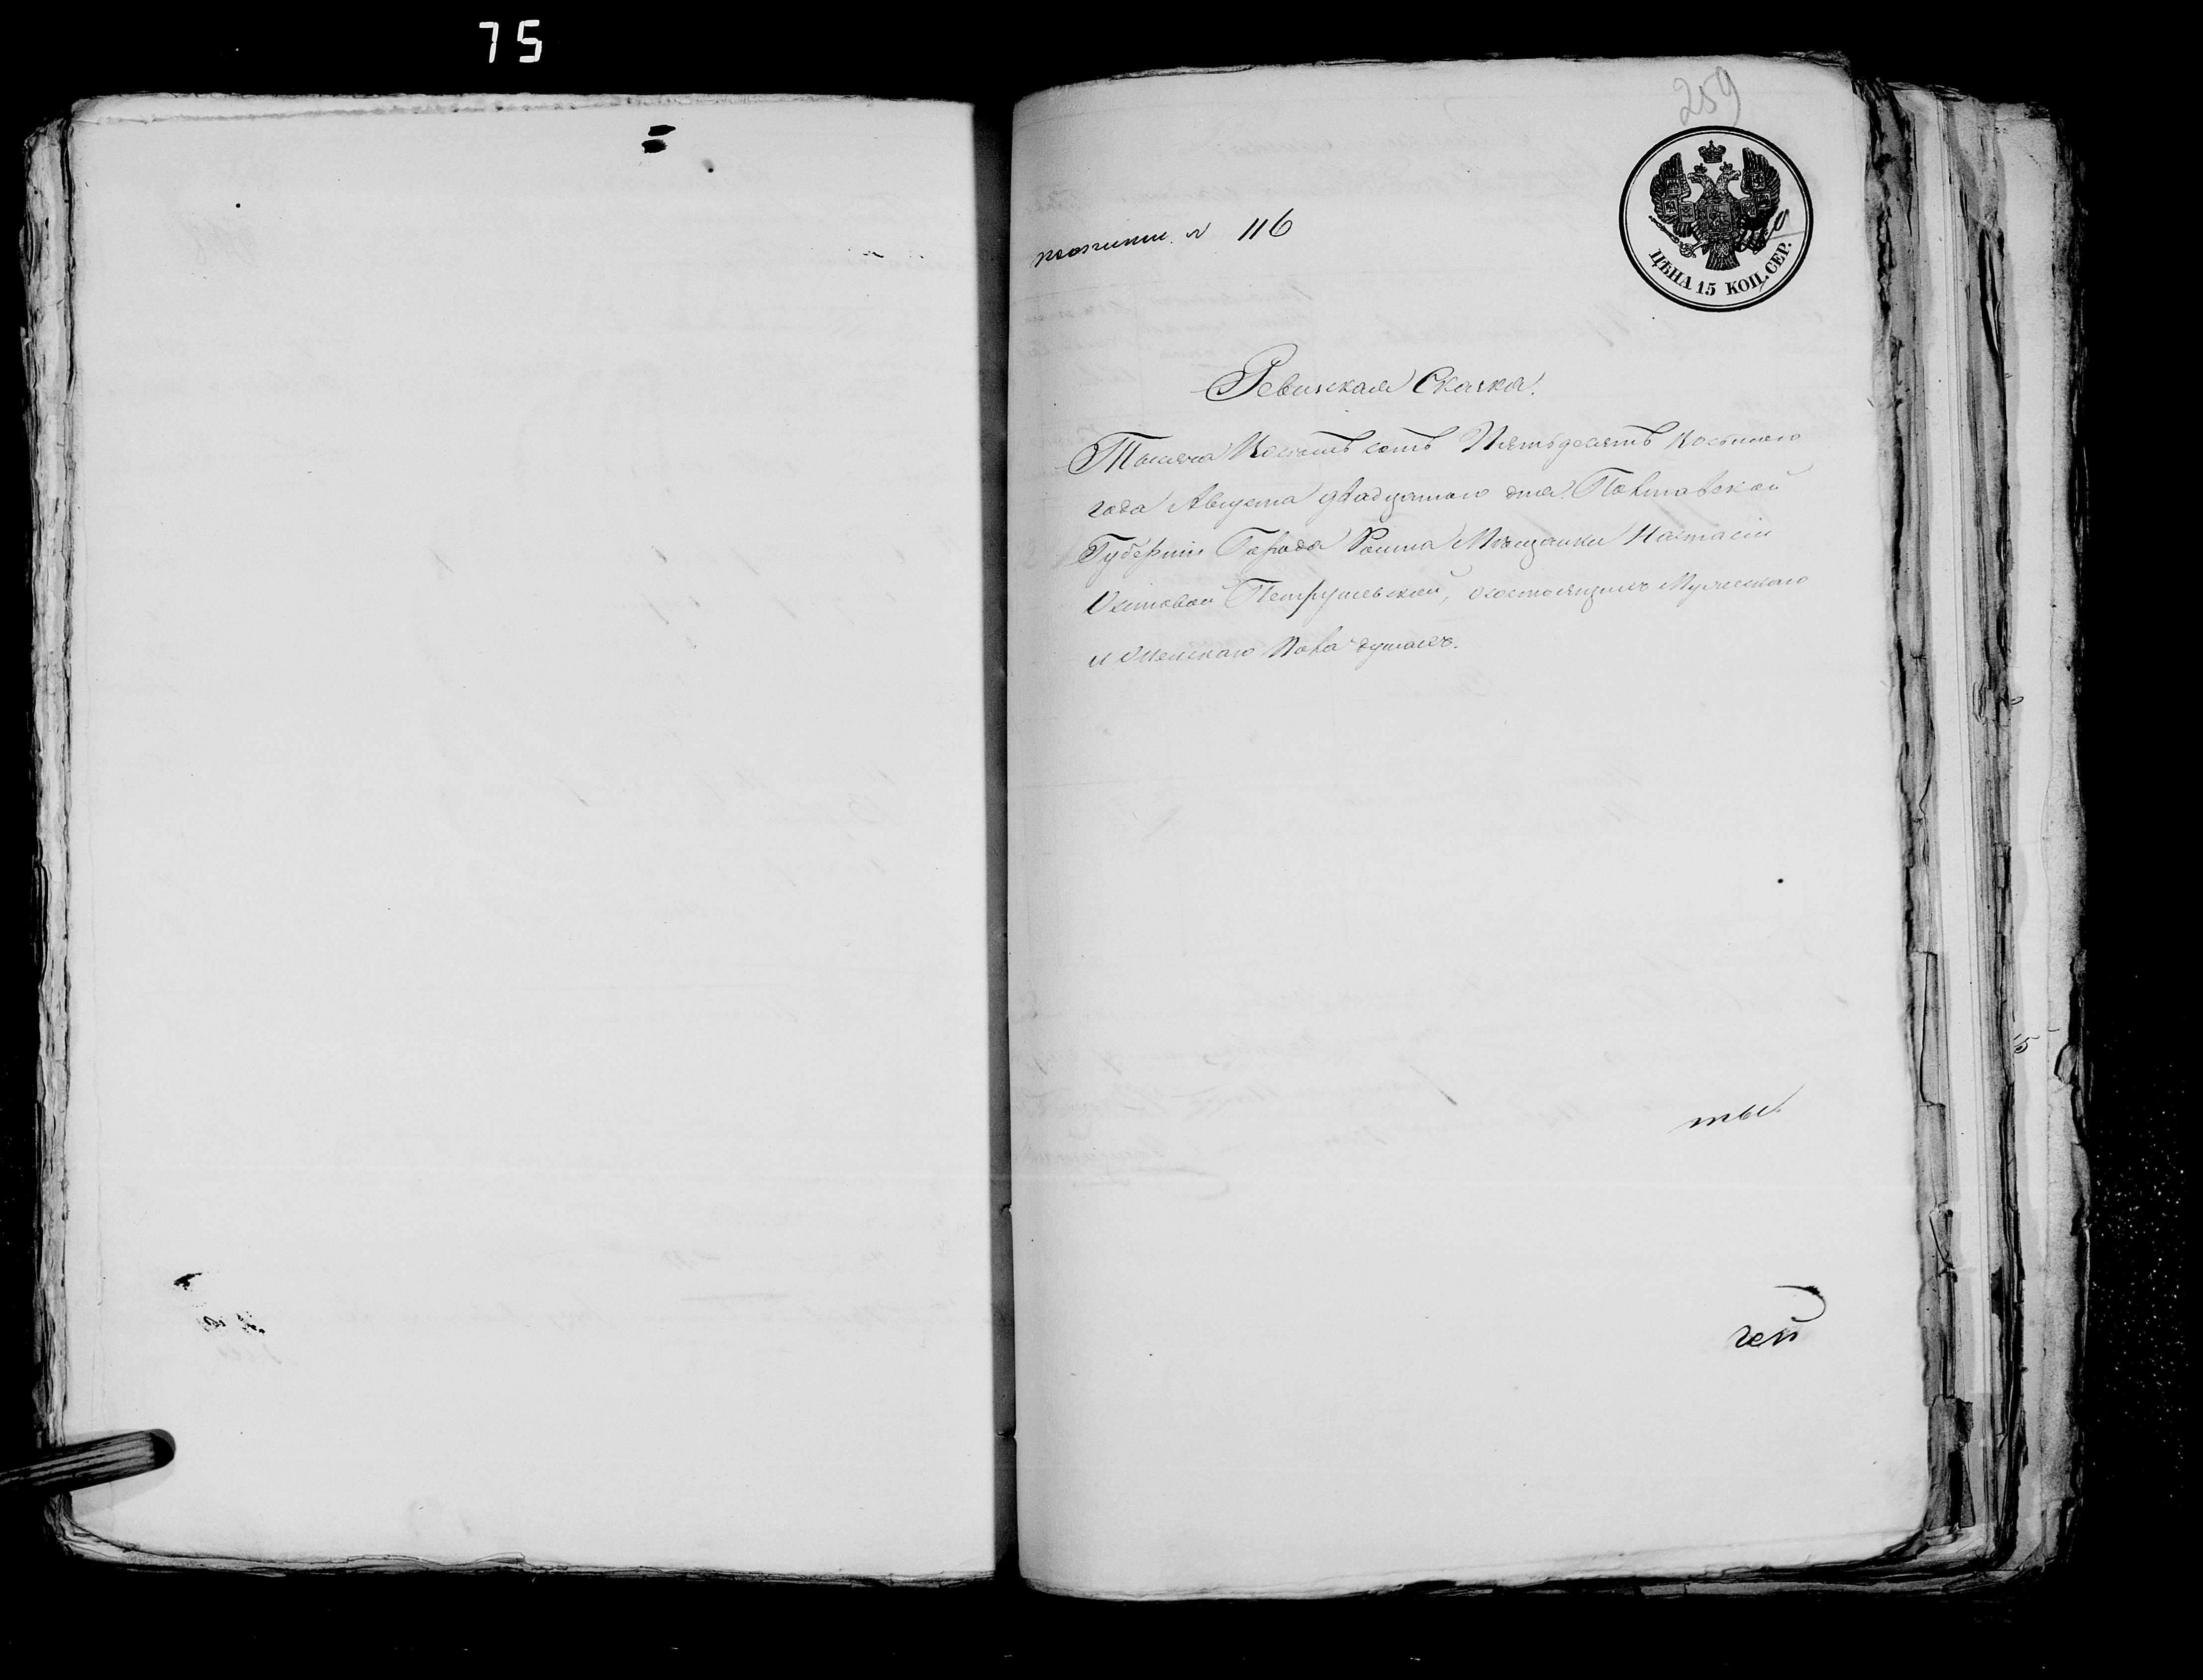 75
259
по описи № 116
ЦѢНА 15 КОП. СЕР.
Ревизская Сказка.
Тысяча Восемь сотъ Пятьдесятъ Восьмого
года Августа двадцатого дня Полтавской
Губерніи Города Ромна Мѣщанки Настасіи
Петрушевской, о состоящихъ Мужескаго
и Женскаго Пола душахъ.
ты
гей